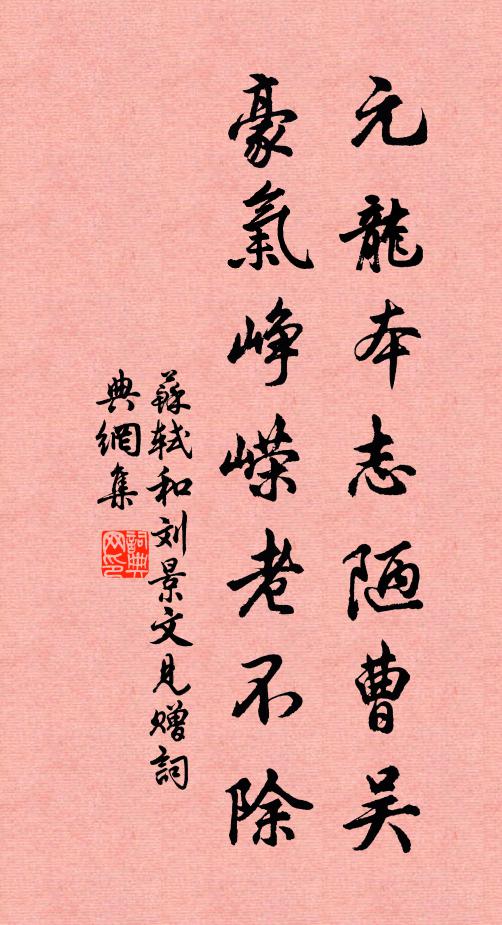 元龍本志陋曹吴
豪氣峥嵘老不除
蘇軾和刘景文見赠詞
典網集
詞典网印